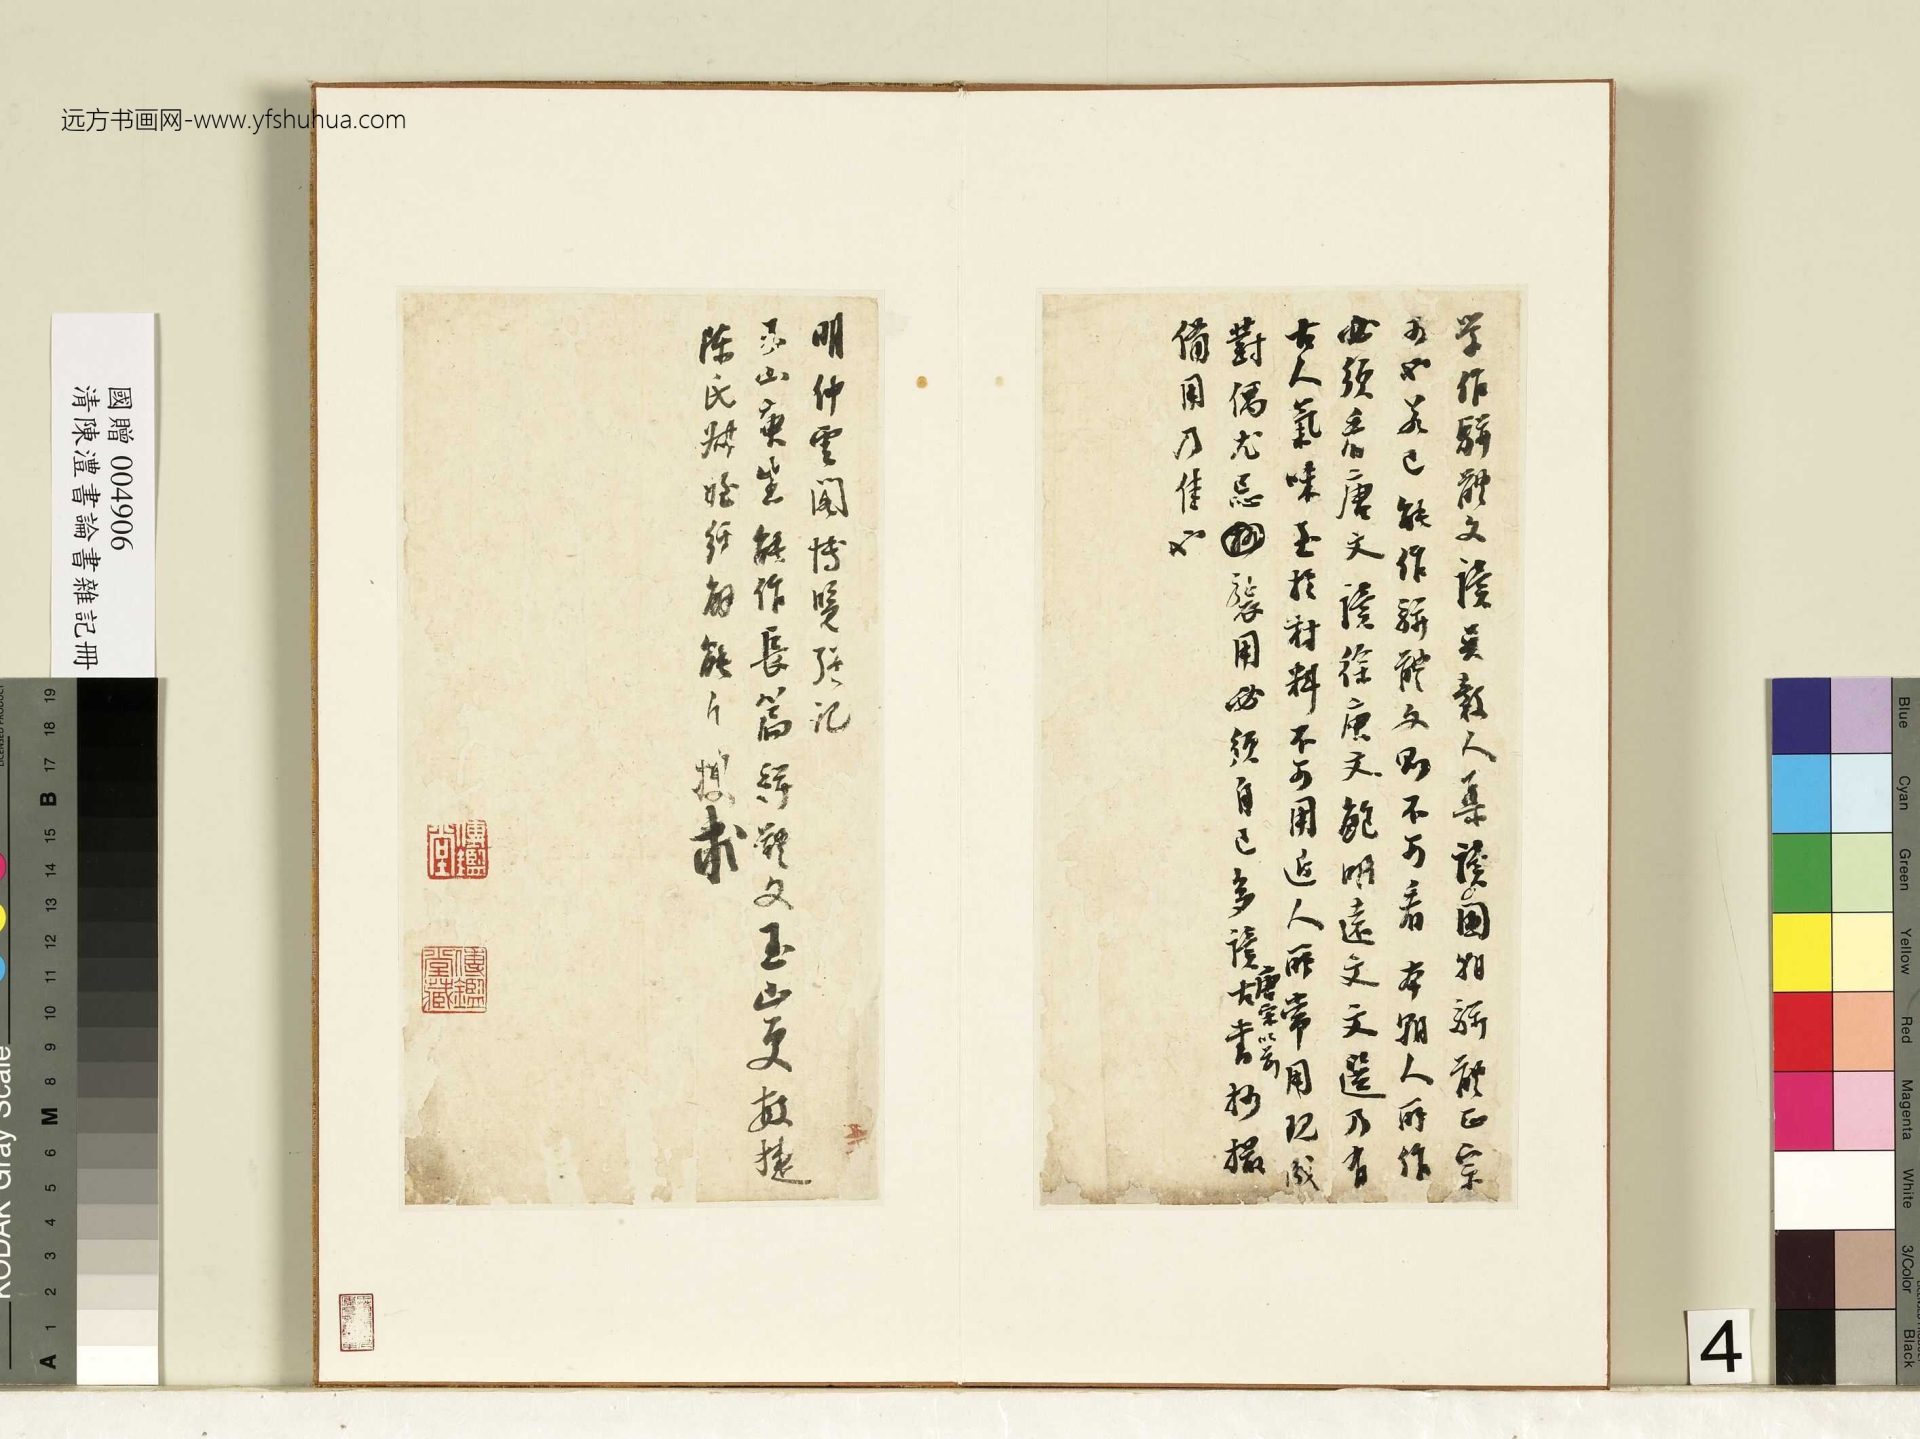 远方书画网-www.yfshuhua.com
國贈 004906
清陳澧書論書雜記冊
学作駢體文讀吳穀人集讀國朝駢體正宗
可也若已能作駢體文則不可看本朝人所作
必須看唐文讀徐庾文鮑明遠文文選乃有
古人氣味至於材料不可用近人所常用現成
對偶尤忌襲用必須自己多讀古書抄撮
唐宋以前
備用乃佳也
明仲雲閣博覽強記
玉山庾生能作長篇駢體文玉山更敏捷
陳氏
傳鑑堂
傳鑑堂藏
KODAK Gray Scale
A 1 2 3 4 5 6 M 8 9 10 11 12 13 14 15 B 17 18 19
Blue
Cyan
Green
Yellow
Red
Magenta
White
3/Color
Black
4